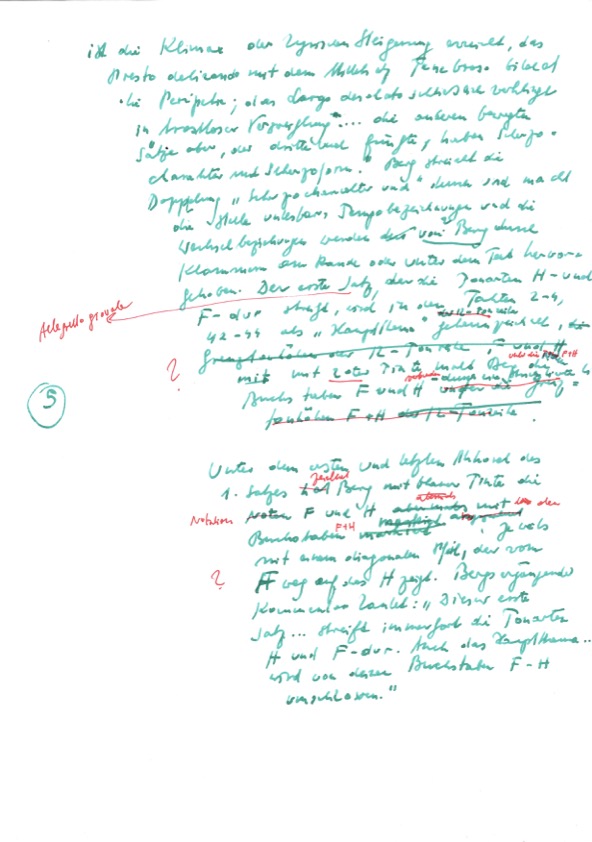 ist die Klimax der lyrischen Steigerung erreicht, das
Presto delirando mit dem Mittelstück Tenebroso bildet
die Peripetie; das Largo desolato schliesslich verklingt
in trostloser Verzweiflung"... die anderen bewegten
Sätze aber, der dritte und fünfte, haben Scherzo-
charakter und Scherzoform." Berg streicht die
Doppelung "Scherzocharakter und" durch und macht
die Stelle Tempobezeichnungen und die
Wechselbeziehungen werden von Berg durch
Klammern am Rande oder unter dem Text hervor-
gehoben. Der erste Satz, der die Tonarten H- und
Allegretto gioviale
F-dur streift, wird in den Takten 2-4,
42-44 als "Hauptthema" gekennzeichnet,
der 12-Tonreihe F und H
? mit mit roter Tinte Berg die
Buchstaben F und H
F+H der 12-Tonreihe.
5
Unter dem ersten und letzten Akkord des
1. Satzes hat Berg mit blauer Tinte die
Notation Noten F und H mit den
Buchstaben F+H , jeweils
mit einem diagonalen Pfeil, der vom
? F weg auf das H zeigt. Bergs ergänzender
Kommentar lautet: "Dieser erste
Satz... streift immerfort die Tonarten
H und F-dur. Auch das Hauptthema..
wird von dessen Buchstaben F-H
umschlossen."